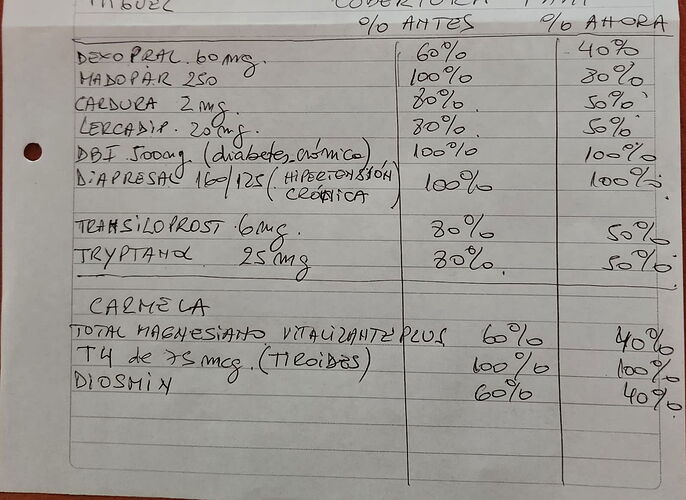 MIGUEL COBERTURA PAMI
% ANTES % AHORA
DEXOPRAL. 60mg. 60% 40%
MADOPAR 250 100% 80%
CARDURA 2mg. 80% 50%
LERCADIP. 20mg. 80% 50%
DBI 500mg (diabetes crónica) 100% 100%
DIAPRESAL 160/125 (HIPERTENSIÓN 100% 100%
CRÓNICA)
TRANSILOPROST 6mg. 80% 50%
TRYPTANOL 25mg 80% 50%
CARMELA
TOTAL MAGNESIANO VITALIZANTE PLUS 60% 40%
T4 de 75mcg. (TIROIDES) 100% 100%
DIOSMIN 60% 40%